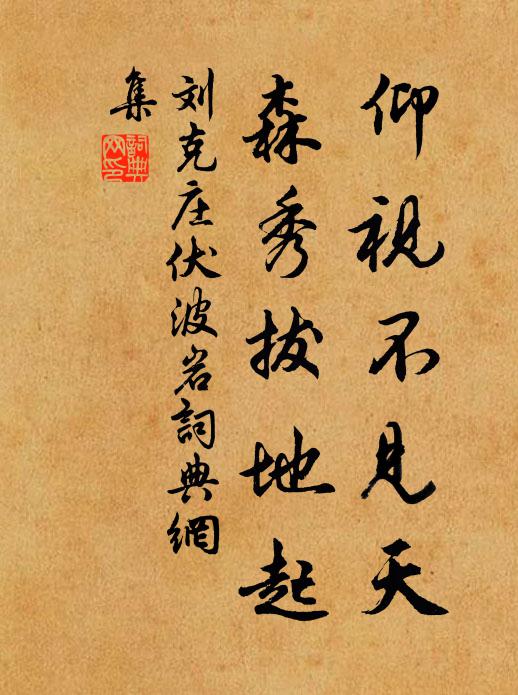 仰视不见天
森秀拔地起
刘克庄伏波岩詞典網
集
詞典
网印